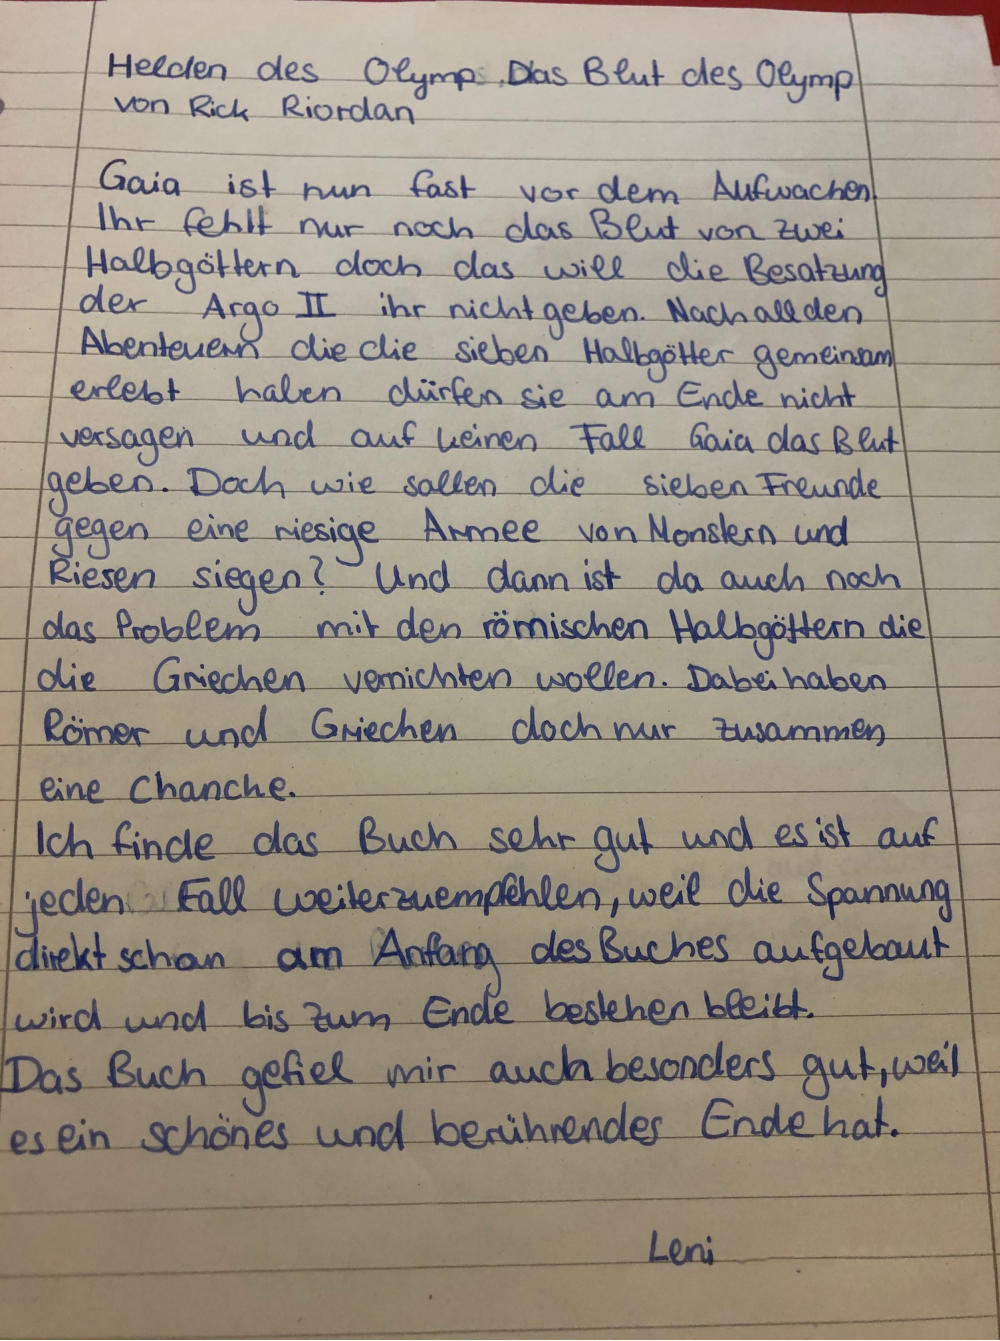 Helden des Olymp. Das Blut des Olymp
von Rick Riordan
Gaia ist nun fast vor dem Aufwachen.
Ihr fehlt nur noch das Blut von zwei
Halbgöttern doch das will die Besatzung
der Argo II ihr nicht geben. Nach all den
Abenteuern die die sieben Halbgötter gemeinsam
erlebt haben dürfen sie am Ende nicht
versagen und auf keinen Fall Gaia das Blut
geben. Doch wie sollen die sieben Freunde
gegen eine riesige Armee von Monstern und
Riesen siegen? Und dann ist da auch noch
das Problem mit den römischen Halbgöttern die
die Griechen vernichten wollen. Dabei haben
Römer und Griechen doch nur zusammen
eine Chanche.
Ich finde das Buch sehr gut und es ist auf
jeden Fall weiterzuempfehlen, weil die Spannung
direkt schon am Anfang des Buches aufgebaut
wird und bis zum Ende bestehen bleibt.
Das Buch gefiel mir auch besonders gut, weil
es ein schönes und berührendes Ende hat.
Leni